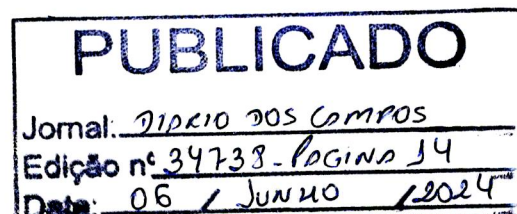 PUBLICADO
Jornal: DIARIO DOS CAMPOS
Edição nº 34738 - PAGINA 14
Data: 06 / JUNHO / 2024